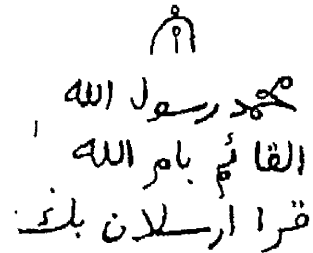 محمد رسول الله
القائم بامر الله
قرا ارسلان بك